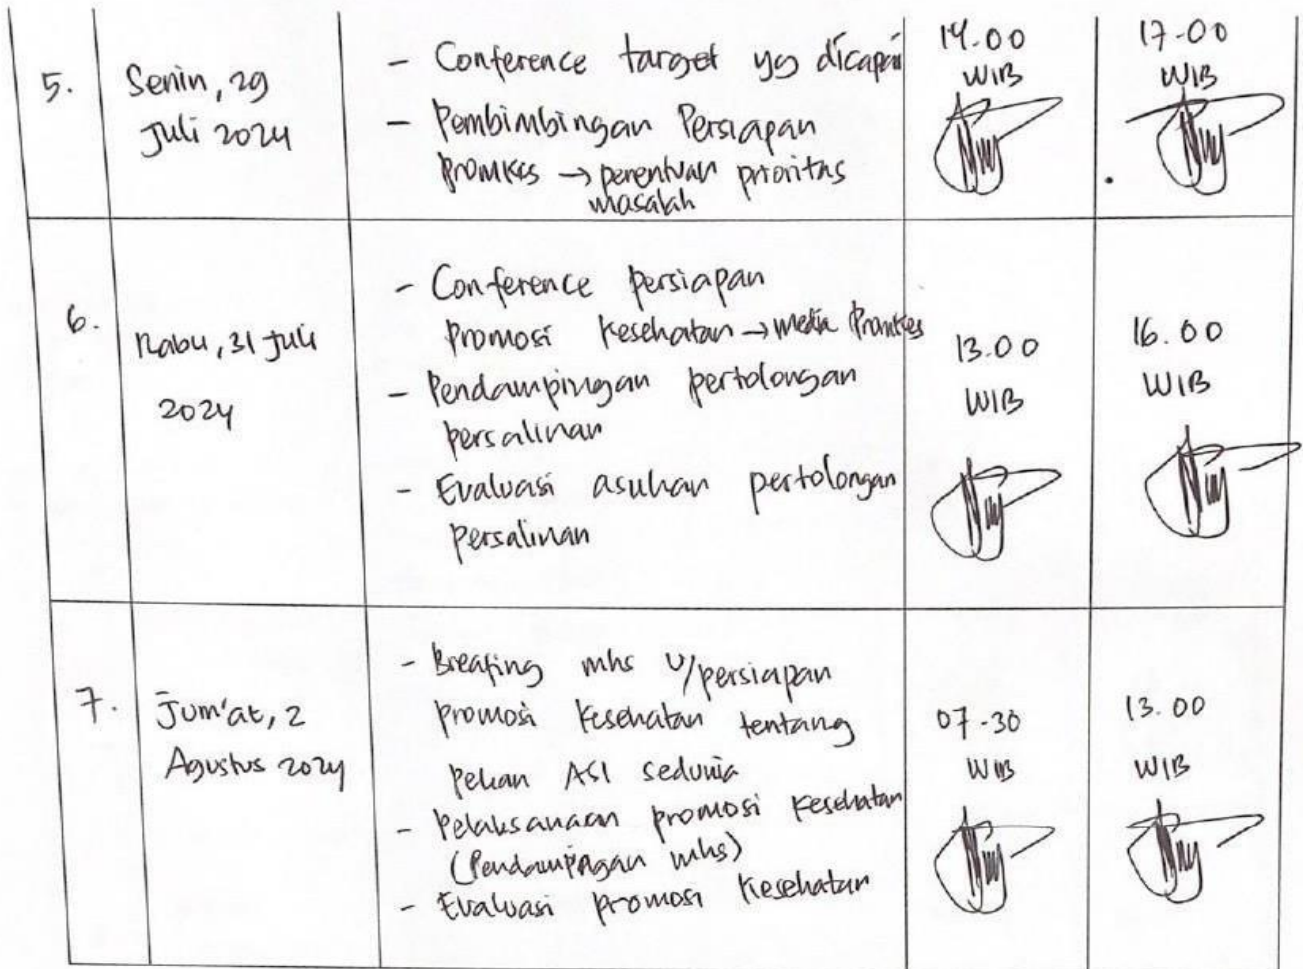 5.
Senin, 29
Juli 2024
- Conference target yg dicapai
- Pembimbingan Persiapan
promkes → penentuan prioritas
masalah
14.00
WIB
17.00
WIB
6.
Rabu, 31 Juli
2024
- Conference persiapan
Promosi Kesehatan → media Promkes
- Pendampingan pertolongan
persalinan
- Evaluasi asuhan pertolongan
persalinan
13.00
WIB
16.00
WIB
7.
Jum'at, 2
Agustus 2024
- Breafing mhs u/persiapan
promosi Kesehatan tentang
pekan ASI sedunia
- Pelaksanaan promosi Kesehatan
(Pendampingan mhs)
- Evaluasi promosi Kesehatan
07-30
WIB
13.00
WIB